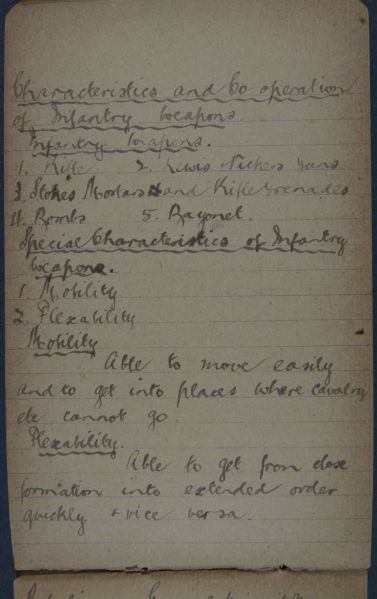 Characteristics and Co-operation
of Infantry Weapons
Infantry Weapons.
1. Rifle 2. Lewis Vickers Guns
3. Stokes Mortars and Rifle Grenades
4. Bombs 5. Bayonet.
Special Characteristics of Infantry
Weapons.
1. Mobility
2. Flexability
Mobility
Able to move easily
and to get into places where cavalry
etc cannot go.
Flexability.
Able to get from close
formation into extended order
quickly & vice versa.